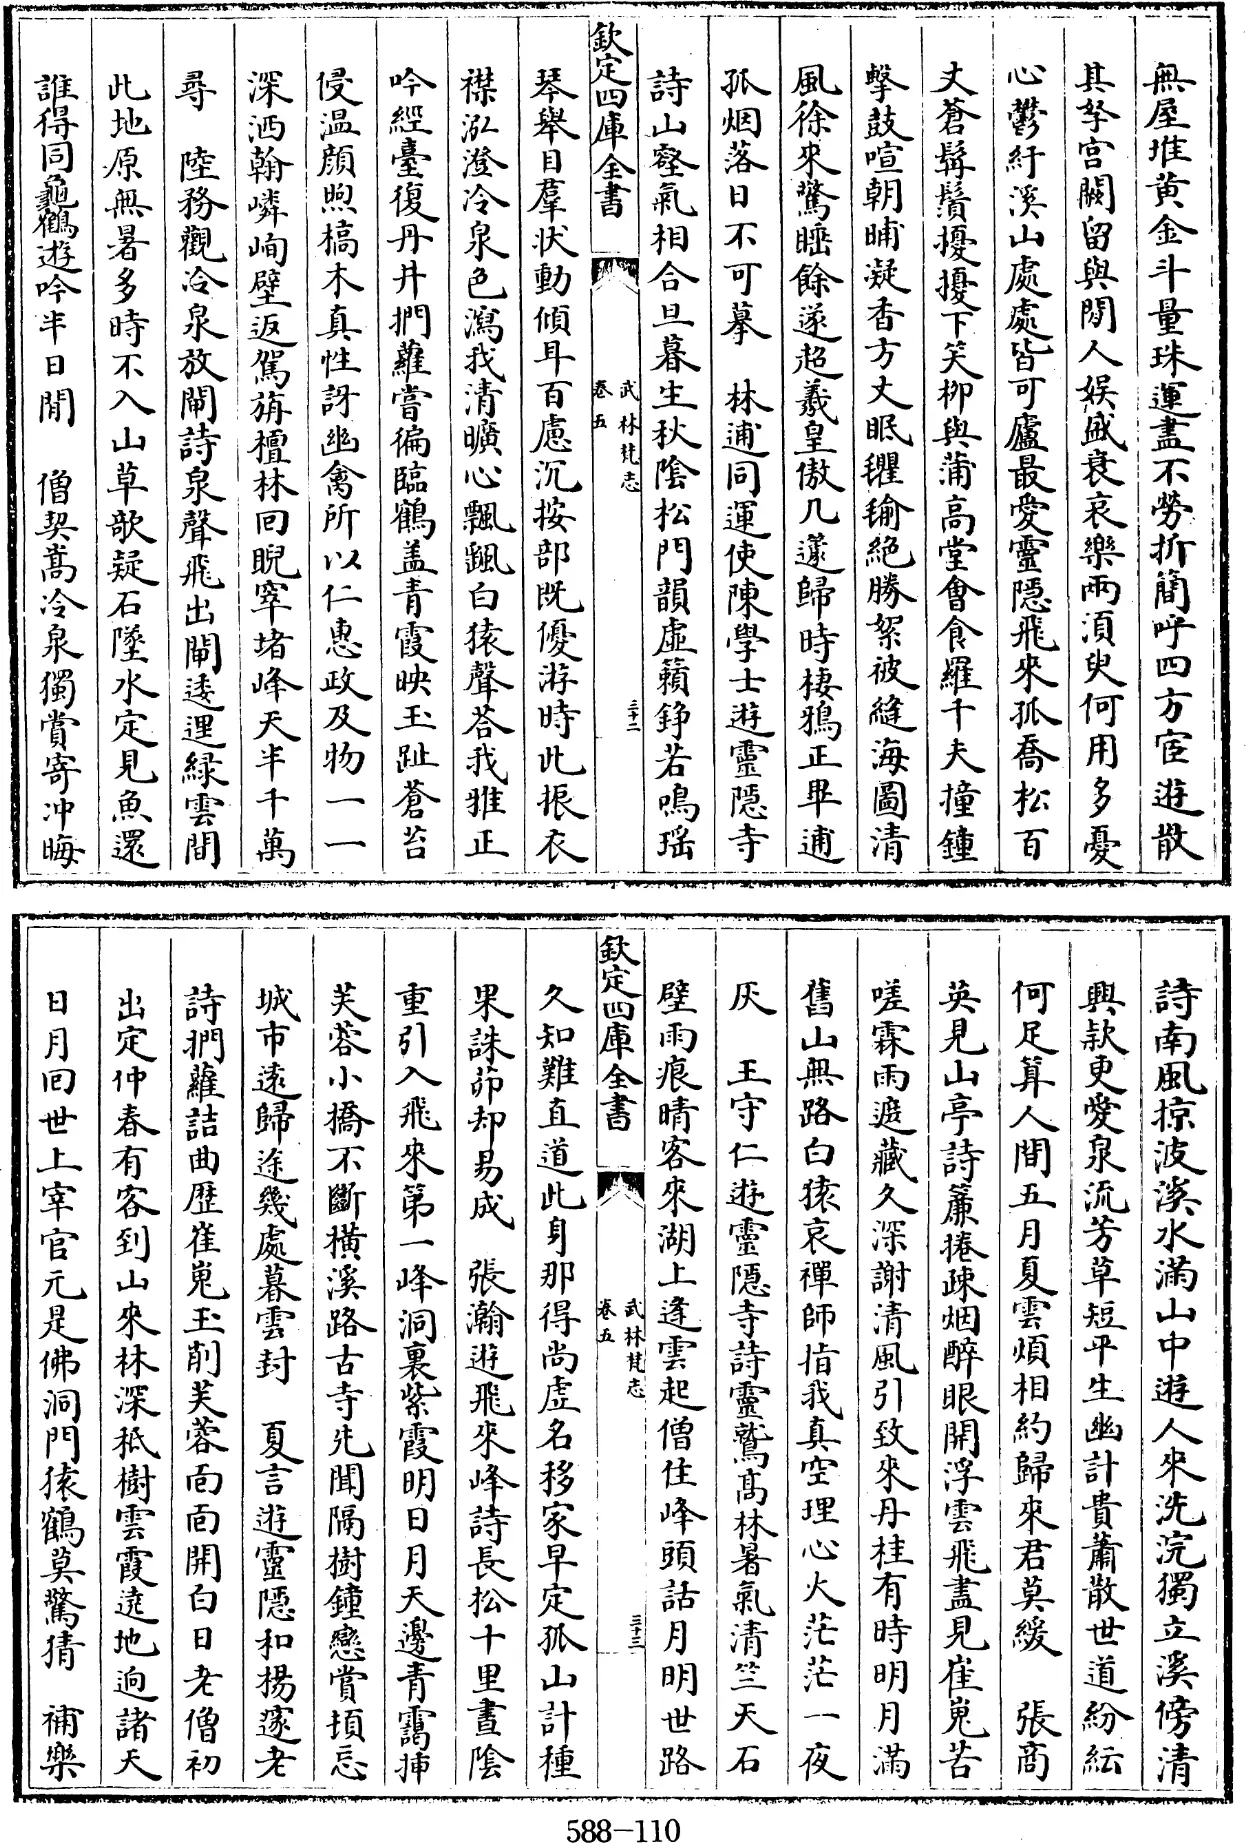 無屋堆黄金斗量珠運盡不勞折簡呼四方宦遊散
其孥宫闕留與閒人娱盛衰哀樂兩湏臾何用多憂
心鬱紆溪山處處皆可廬最愛靈隠飛來孤喬松百
丈蒼髯鬚擾擾下笑栁與蒲高堂會食羅千夫撞鐘
擊鼓喧朝晡凝香方丈眠氍毹絶勝絮被縫海圖清
風徐來驚睡餘遂超羲皇傲几蘧歸時棲鴉正畢逋
孤烟落日不可摹　林逋同運使陳學士遊靈隠寺
詩山壑氣相合旦暮生秋隂松門韻虚籟錚若鳴瑶
欽定四庫全書
武林梵志
卷五
三十二
琴舉目羣狀動傾耳百慮沉按部既優游時此振衣
襟泓澄冷泉色瀉我清曠心飄飄白猿聲荅我雅正
吟經臺復丹井捫蘿嘗徧臨鶴盖青霞映玉趾蒼苔
侵温顔煦槁木真性訝幽禽所以仁惠政及物一一
深洒翰嶙峋壁返駕旃檀林回睨窣堵峰天半千萬
尋　陸務觀冷泉放閘詩泉聲飛出閘逶迤緑雲間
此地原無暑多時不入山草欹疑石墜水定見魚還
誰得同龜鶴遊吟半日閒　僧契嵩冷泉獨賞寄冲晦
詩南風掠波溪水滿山中遊人來洗浣獨立溪傍清
興款更愛泉流芳草短平生幽計貴蕭散世道紛紜
何足算人間五月夏雲煩相約歸來君莫緩　張商
英見山亭詩簾捲疎烟醉眼開浮雲飛盡見崔嵬苦
嗟霖雨遮藏久深謝清風引致來丹桂有時明月滿
舊山無路白猿哀禪師借我真空理心火茫茫一夜
灰　王守仁遊靈隠寺詩靈鷲髙林暑氣清竺天石
壁雨痕晴客來湖上逢雲起僧住峰頭話月明世路
欽定四庫全書
武林梵志
卷五
三十三
久知難直道此身那得尚虚名移家早定孤山計種
果誅茆却易成　張瀚遊飛來峰詩長松十里晝隂
重引入飛來第一峰洞裏紫霞明日月天邊青靄揷
芙蓉小橋不斷横溪路古寺先聞隔樹鐘戀賞頓忘
城市遠歸途幾處暮雲封　夏言遊靈隠和楊邃老
詩捫蘿詰曲歴崔嵬玉削芙蓉面面開白日老僧初
出定仲春有客到山來林深秪樹雲霞遶地逈諸天
日月回世上宰官元是佛洞門猿鶴莫驚猜　補樂
588-110